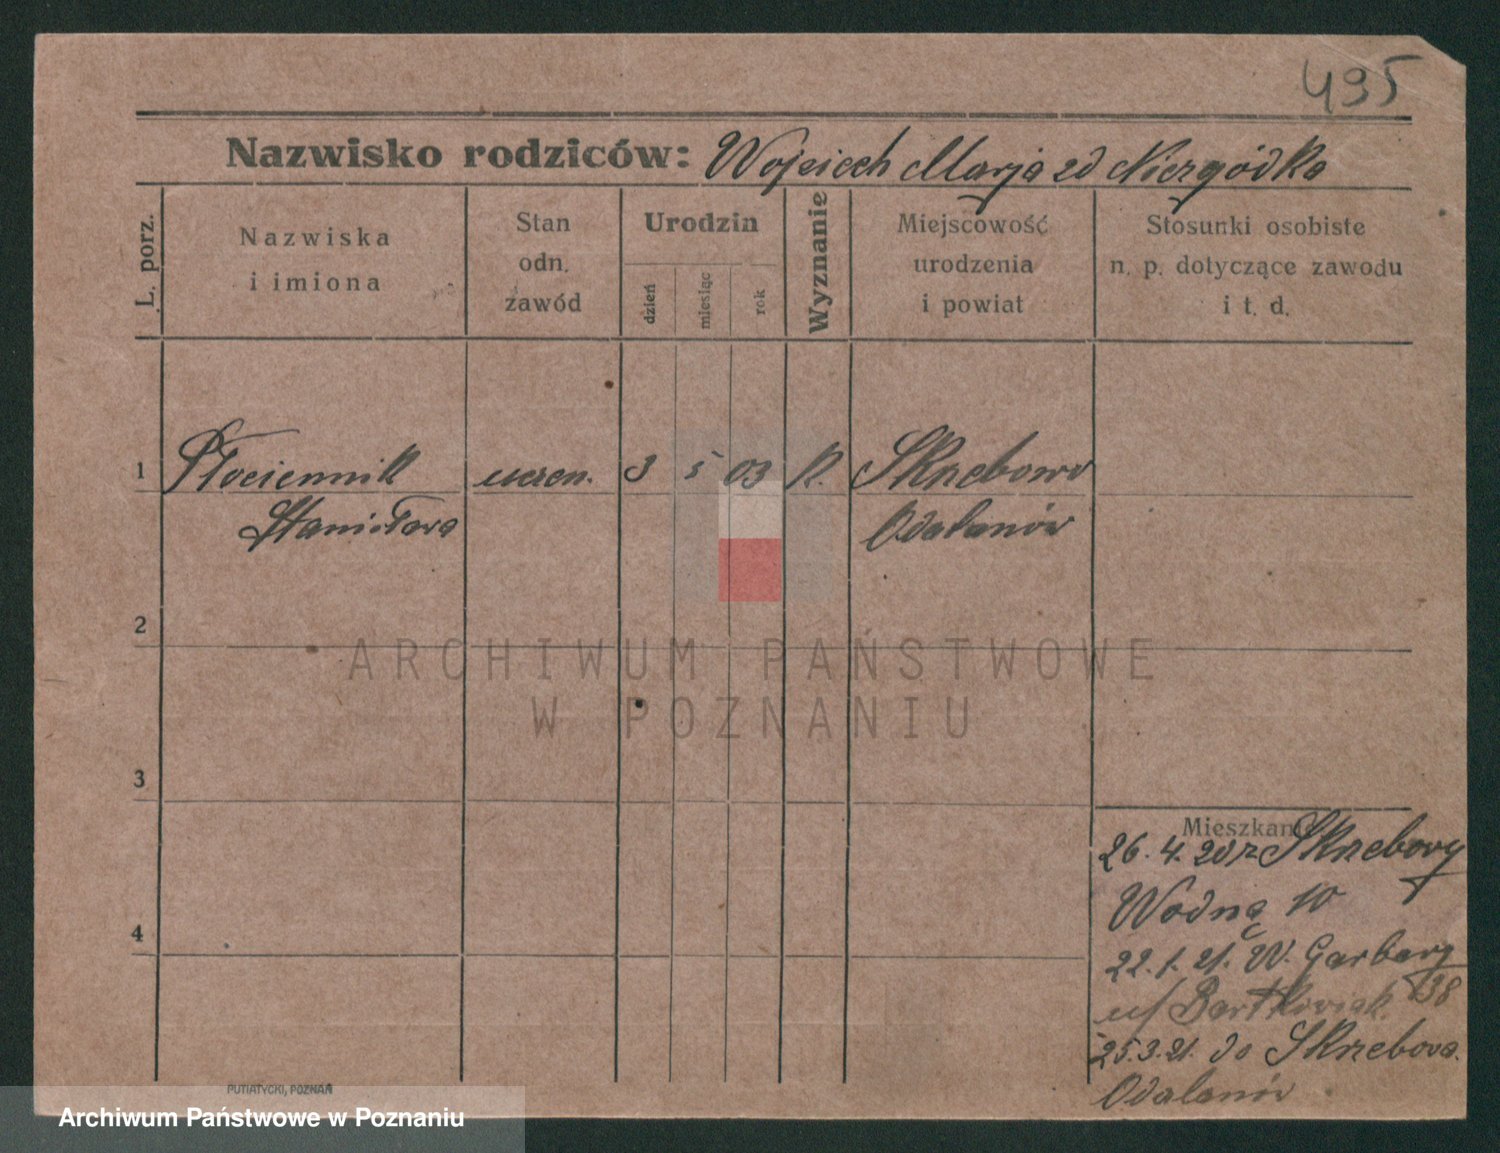 495
Nazwisko rodziców: Wojciech Marja zd Niezgódka
L. porz.
Nazwiska
i imiona
Stan
odn.
zawód
Urodzin
dzień
miesiąc
rok
Wyznanie
Miejscowość
urodzenia
i powiat
Stosunki osobiste
n. p. dotyczące zawodu
i t. d.
1 Płociennik uczen. 3 5 03 K. Skrzebowo
Stanisława Odalanów
2
ARCHIWUM PAŃSTWOWE
W POZNANIU
3
4
Mieszkanie
26. 4. 20 z Skrzebowy
Wodną 10
22. 1. 21. W. Garbary
38
u/ Bartkowiak.
25. 3. 21. do Skrzebowa.
Odalanów
PUTIATYCKI, POZNAŃ
Archiwum Państwowe w Poznaniu